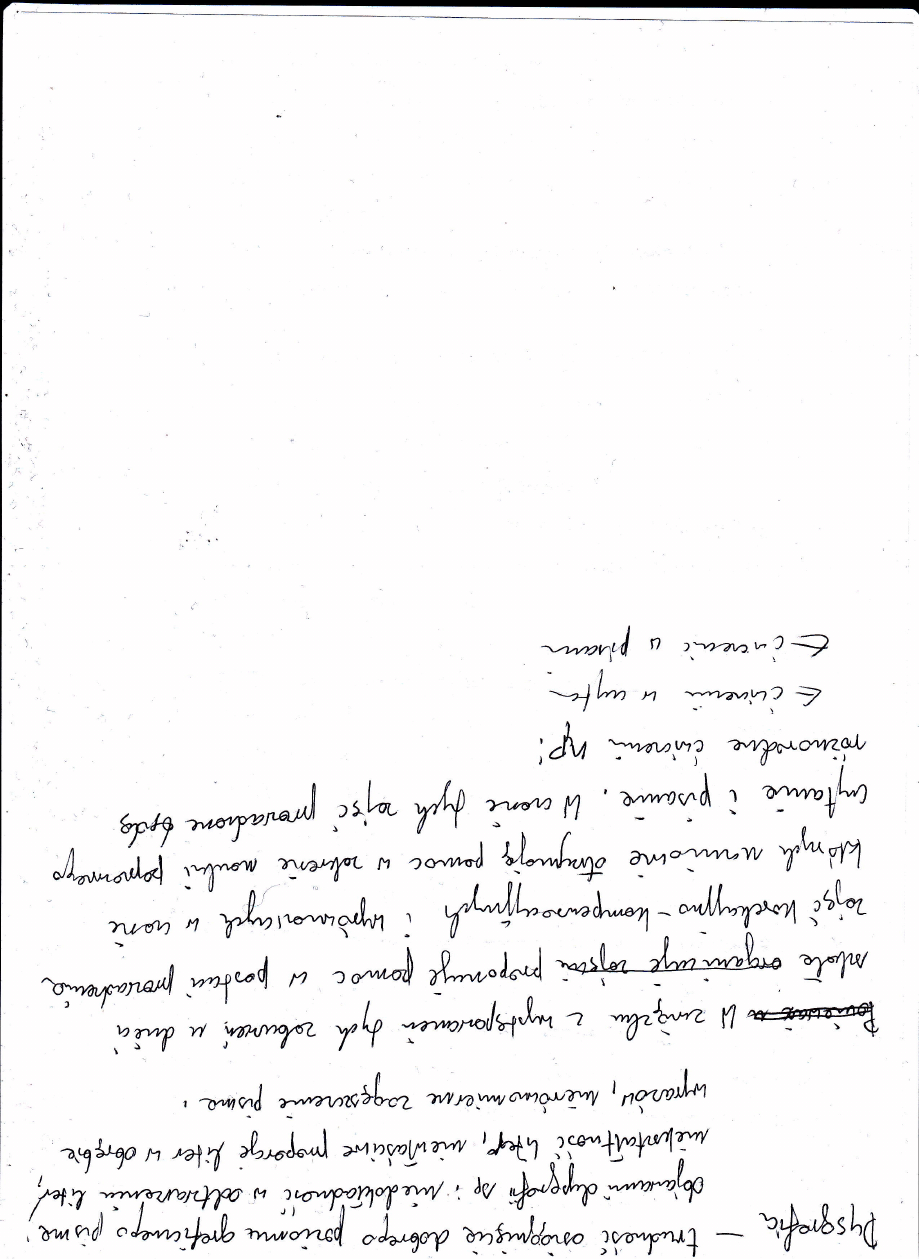 Dysgrafia – trudność osiągnięcia dobrego poziomu graficznego pisma.
Objawami dysgrafii są: niedokładność w odtwarzaniu liter,
niekształtność liter, niewłaściwe proporcje liter w obrębie
wyrazów, nierównomierne zagęszczenie pisma.
Ponieważ w W związku z występowaniem tych zaburzeń u dzieci
szkoła organizuje zajęcia proponuje pomoc w postaci prowadzenia
zajęć korekcyjno-kompensacyjnych i wyrównawczych w czasie
których uczniowie otrzymują pomoc w zakresie nauki poprawnego
czytania i pisania. W czasie tych zajęć prowadzone będą
różnorodne ćwiczenia np:
ćwiczenia w
ćwiczenia w pisaniu